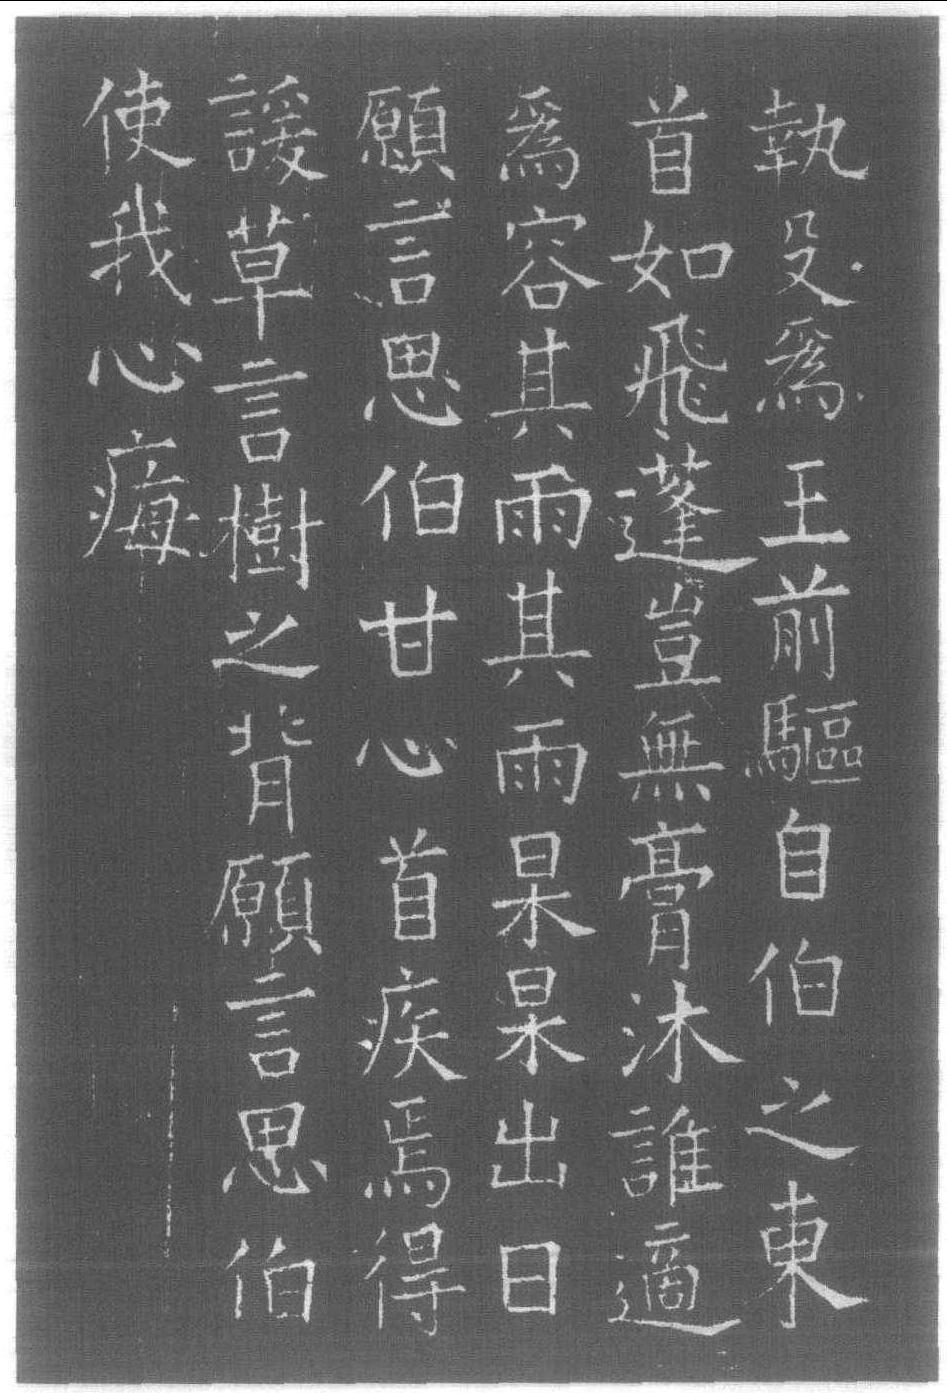 執殳爲王前驅自伯之東
首如飛蓬豈無膏沐誰適
爲容其雨其雨杲杲出日
願言思伯甘心首疾焉得
諼草言樹之背願言思伯
使我心痗